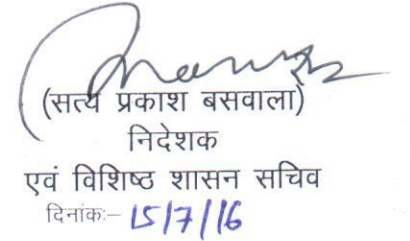 (सत्य प्रकाश बसवाला)
निदेशक
एवं विशिष्ठ शासन सचिव
दिनांकः– 15/7/16